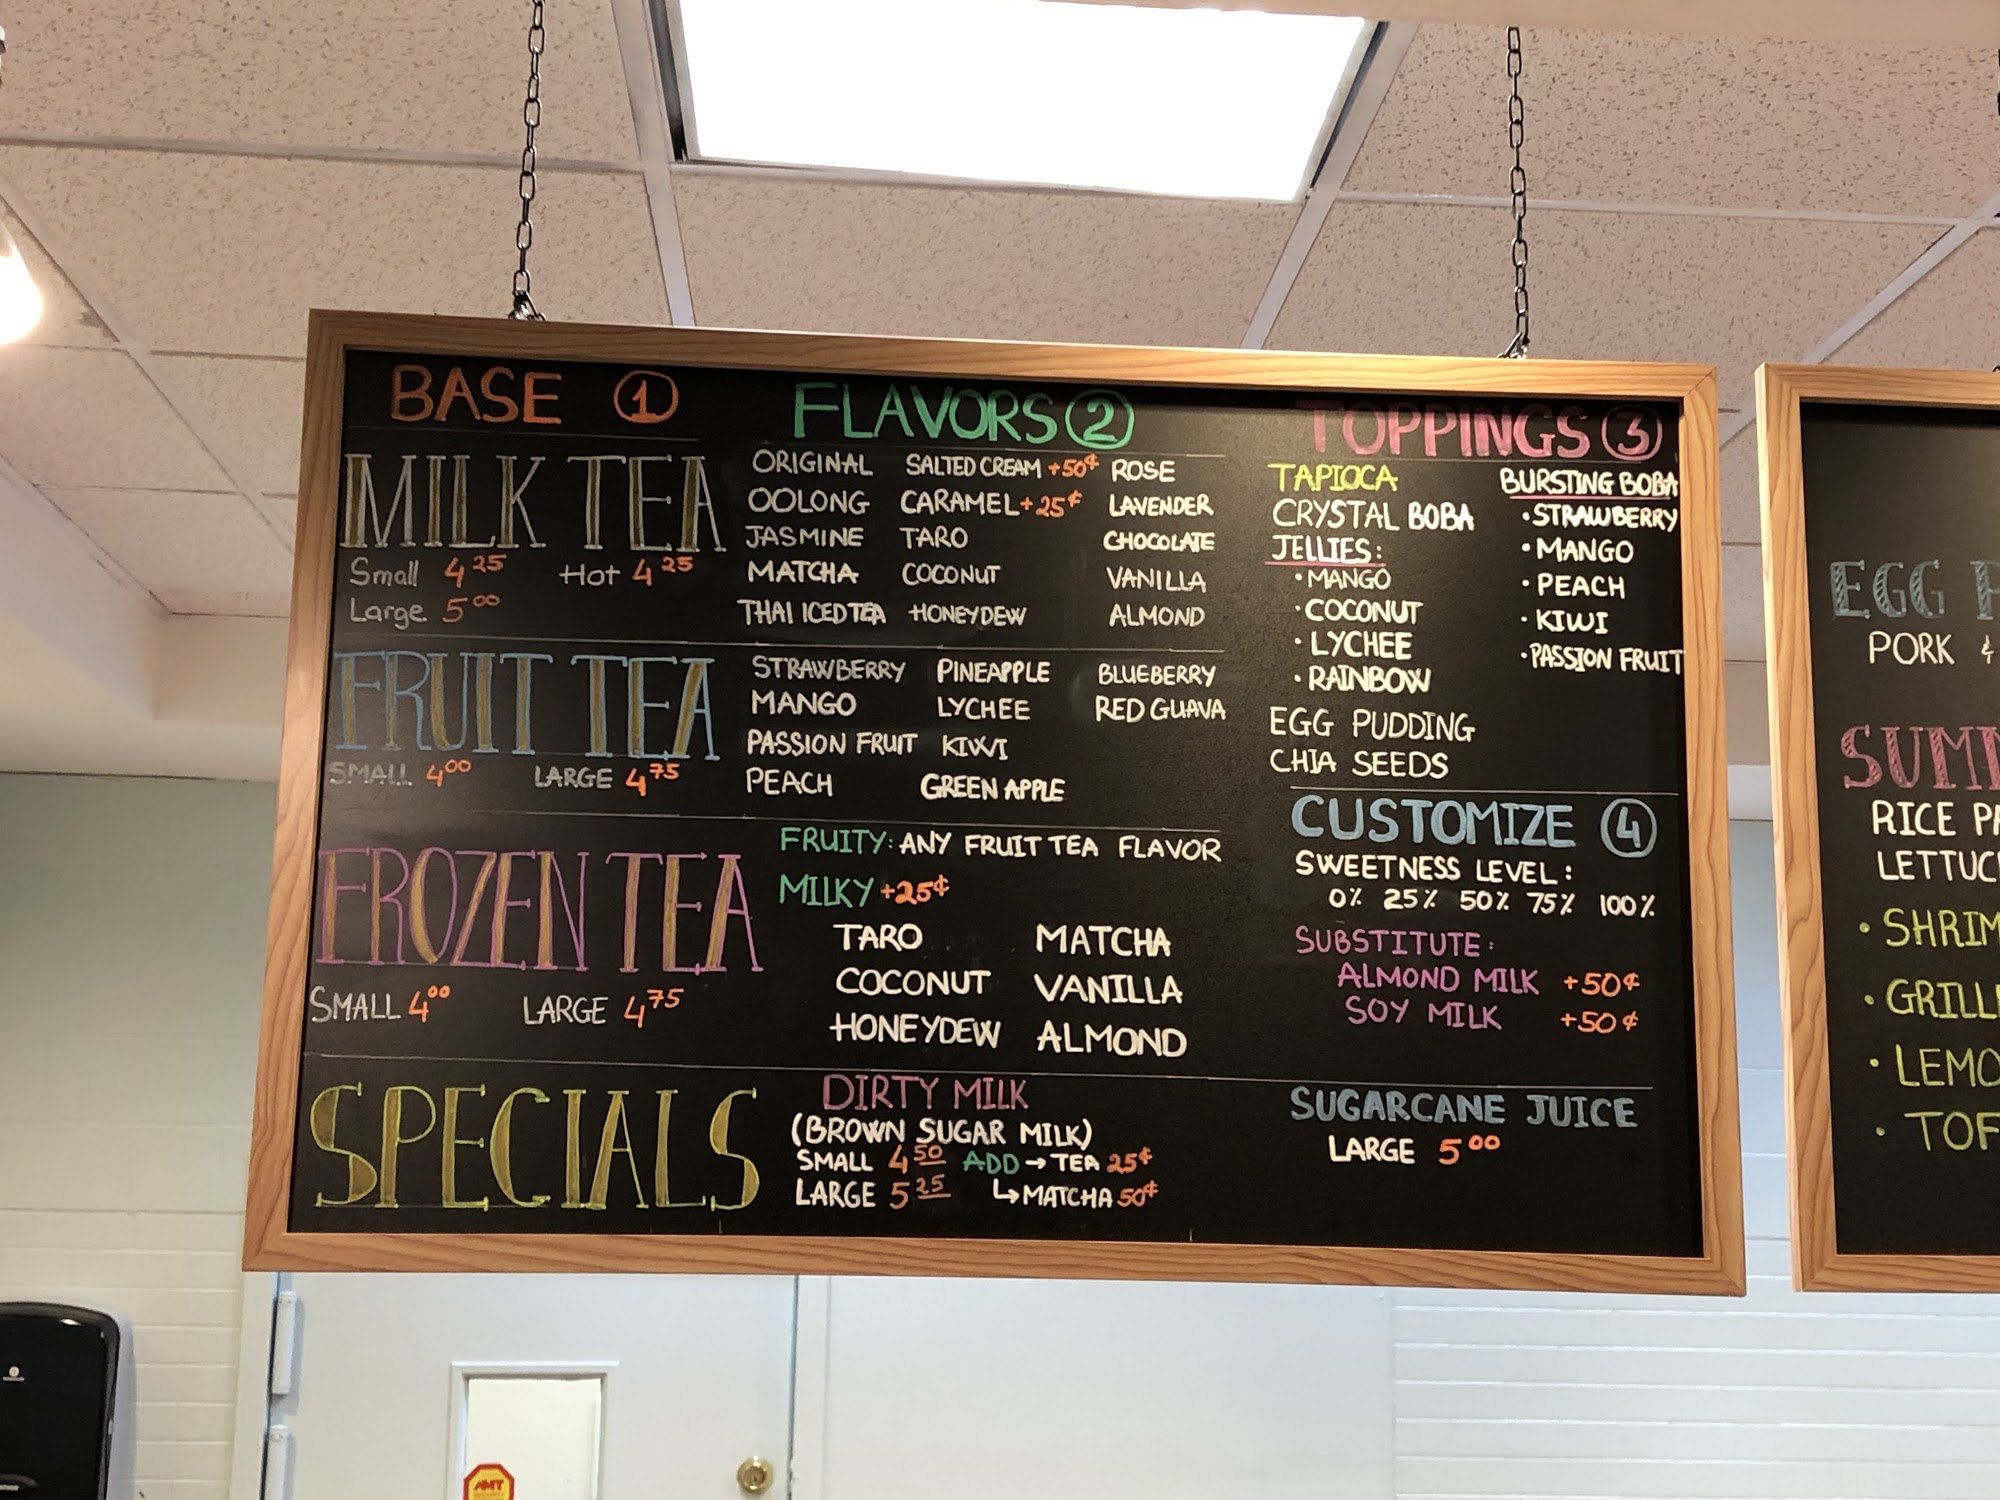 BASE 1
MILK TEA
Small 4.25 Hot 4.25
Large 5.00
FRUIT TEA
SMALL 4.00 LARGE 4.75
FROZEN TEA
SMALL 4.00 LARGE 4.75
SPECIALS
FLAVORS 2
ORIGINAL SALTED CREAM +50¢ ROSE
OOLONG CARAMEL +25¢ LAVENDER
JASMINE TARO CHOCOLATE
MATCHA COCONUT VANILLA
THAI ICED TEA HONEYDEW ALMOND
STRAWBERRY PINEAPPLE BLUEBERRY
MANGO LYCHEE RED GUAVA
PASSION FRUIT KIWI
PEACH GREEN APPLE
FRUITY: ANY FRUIT TEA FLAVOR
MILKY +25¢
TARO MATCHA
COCONUT VANILLA
HONEYDEW ALMOND
DIRTY MILK
(BROWN SUGAR MILK)
SMALL 4.50 ADD → TEA 25¢
LARGE 5.25 ↳ MATCHA 50¢
TOPPINGS 3
TAPIOCA
CRYSTAL BOBA
JELLIES:
• MANGO
• COCONUT
• LYCHEE
• RAINBOW
EGG PUDDING
CHIA SEEDS
BURSTING BOBA
• STRAWBERRY
• MANGO
• PEACH
• KIWI
• PASSION FRUIT
CUSTOMIZE 4
SWEETNESS LEVEL:
0% 25% 50% 75% 100%
SUBSTITUTE:
ALMOND MILK +50¢
SOY MILK +50¢
SUGARCANE JUICE
LARGE 5.00
EGG
PORK &
RICE
• LEMO
AMT